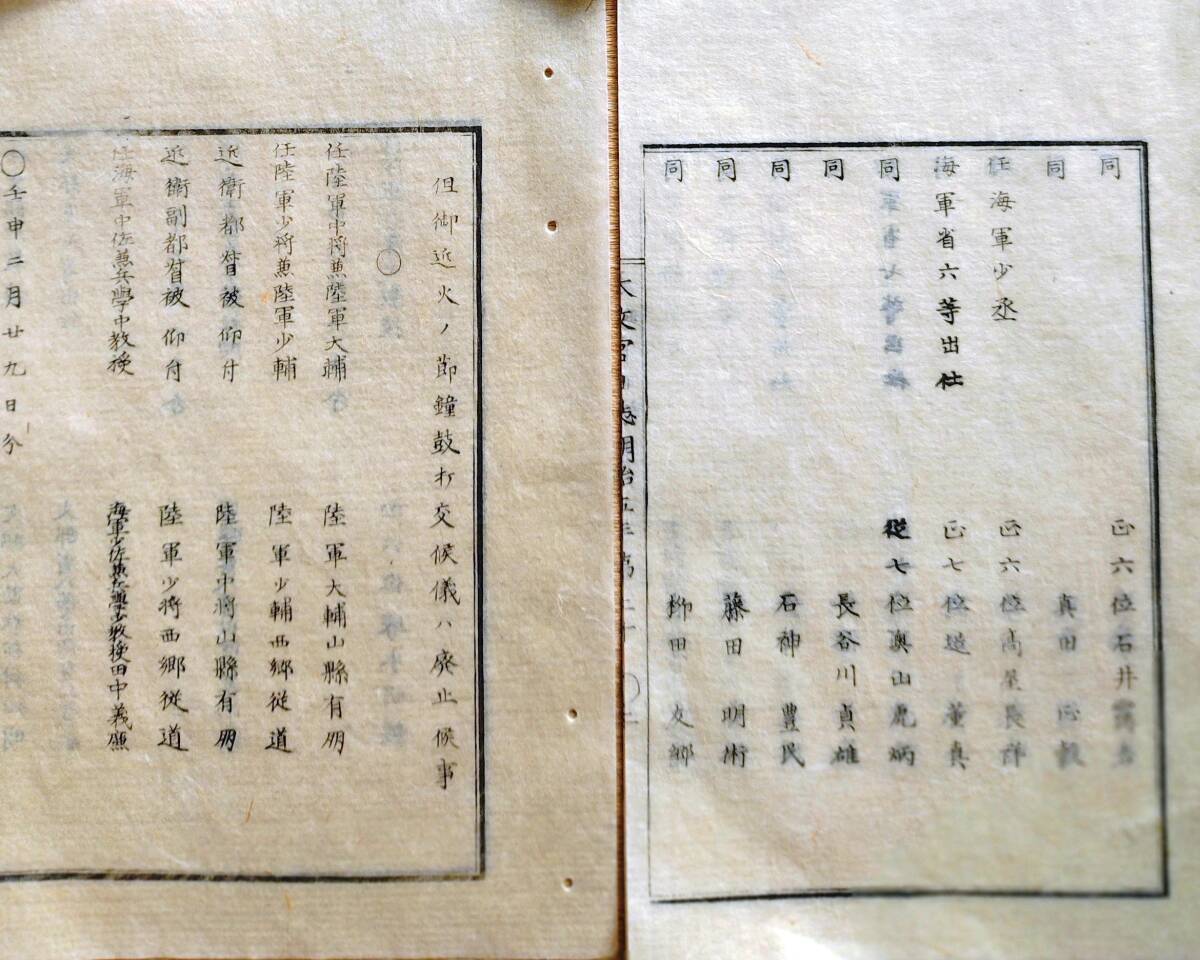 同 正六位石井
同 真田
任海軍少丞 正六位高屋長祥
海軍省六等出仕 正七位
同 從七位奥山虎炳
同 長谷川貞雄
同 石神豊民
同 藤田明術
同 柳田友郷
日誌明治五年第二十
但御近火ノ節鐘鼓打交候儀ハ廃止候事
〇
任陸軍中將兼陸軍大輔 陸軍大輔山縣有朋
任陸軍少將兼陸軍少輔 陸軍少輔西郷從道
近衛都督被仰付 陸軍中將山縣有朋
近衛副都督被仰付 陸軍少將西郷從道
任海軍中佐兼兵學中教授 海軍少佐兼兵學少教授田中義廉
〇壬申二月廿九日